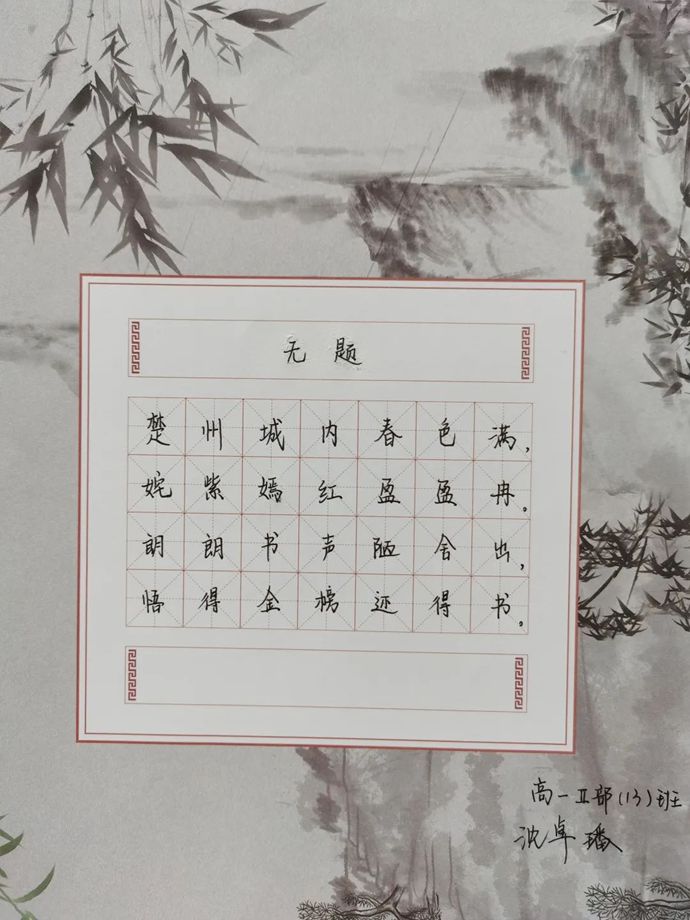 无题
楚州城内春色满，
姹紫嫣红盈盈冉。
朗朗书声陋舍出，
悟得金榜还得书。
高一Ⅱ部(13)班
沈卓璠